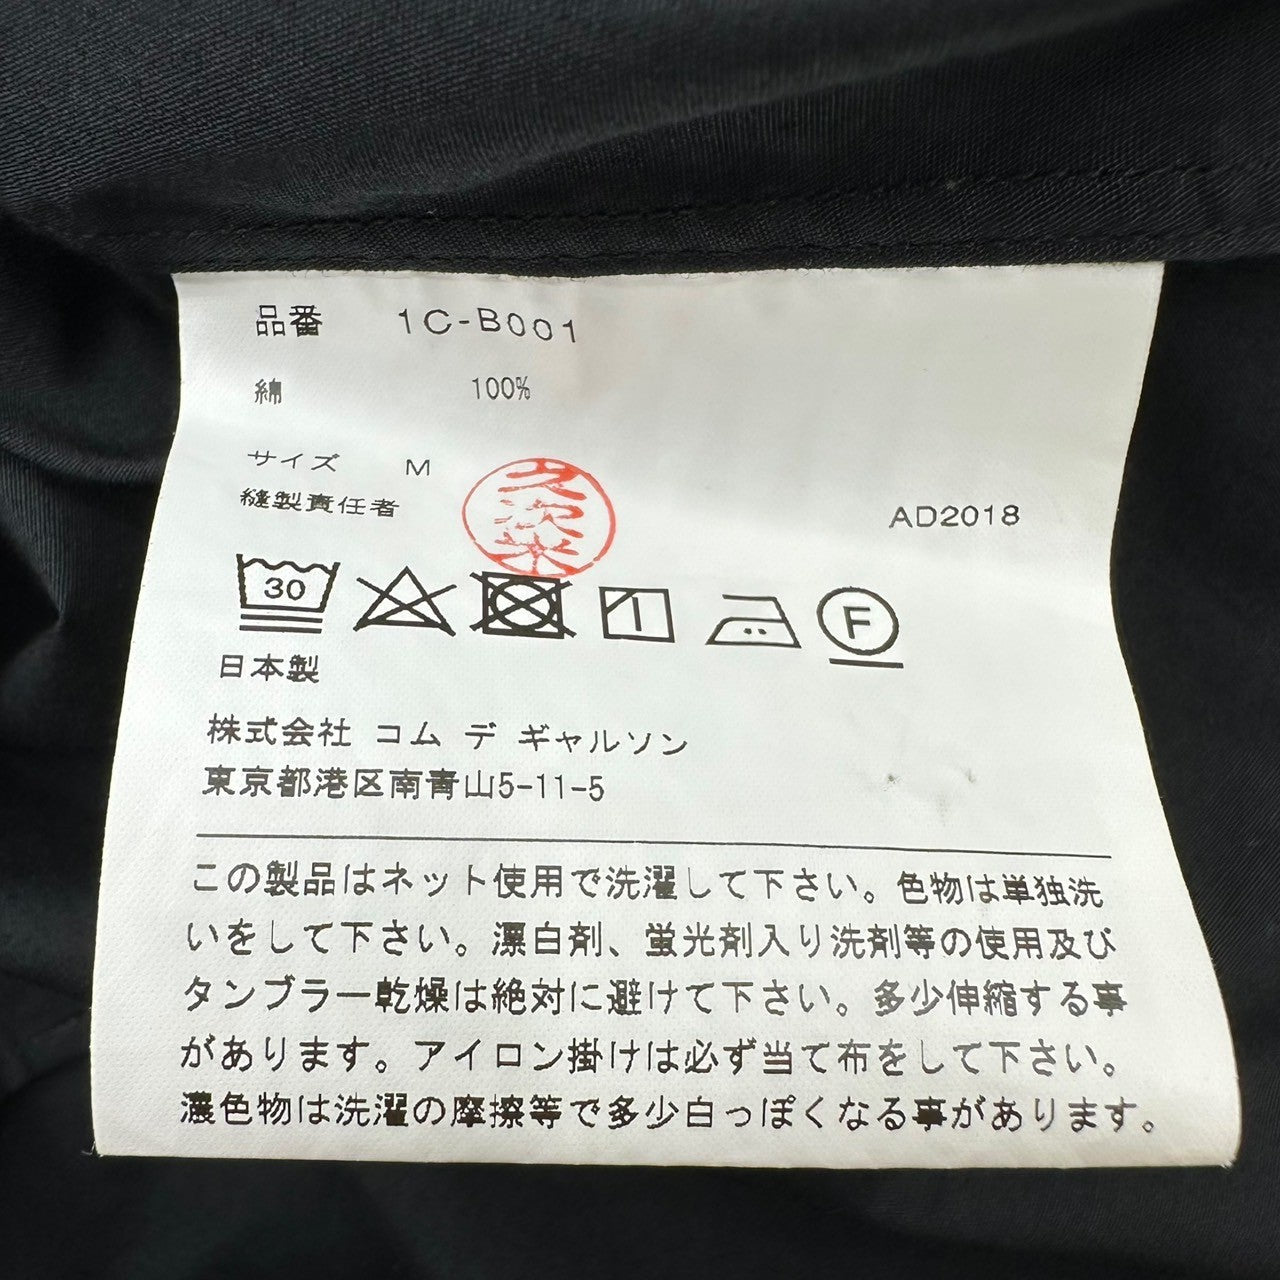 品番 1C-B001
綿 100%
サイズ M
縫製責任者
AD2018
30
F
日本製
株式会社 コム デ ギャルソン
東京都港区南青山5-11-5
この製品はネット使用で洗濯して下さい。色物は単独洗
いをして下さい。漂白剤、蛍光剤入り洗剤等の使用及び
タンブラー乾燥は絶対に避けて下さい。多少伸縮する事
があります。アイロン掛けは必ず当て布をして下さい。
濃色物は洗濯の摩擦等で多少白っぽくなる事があります。